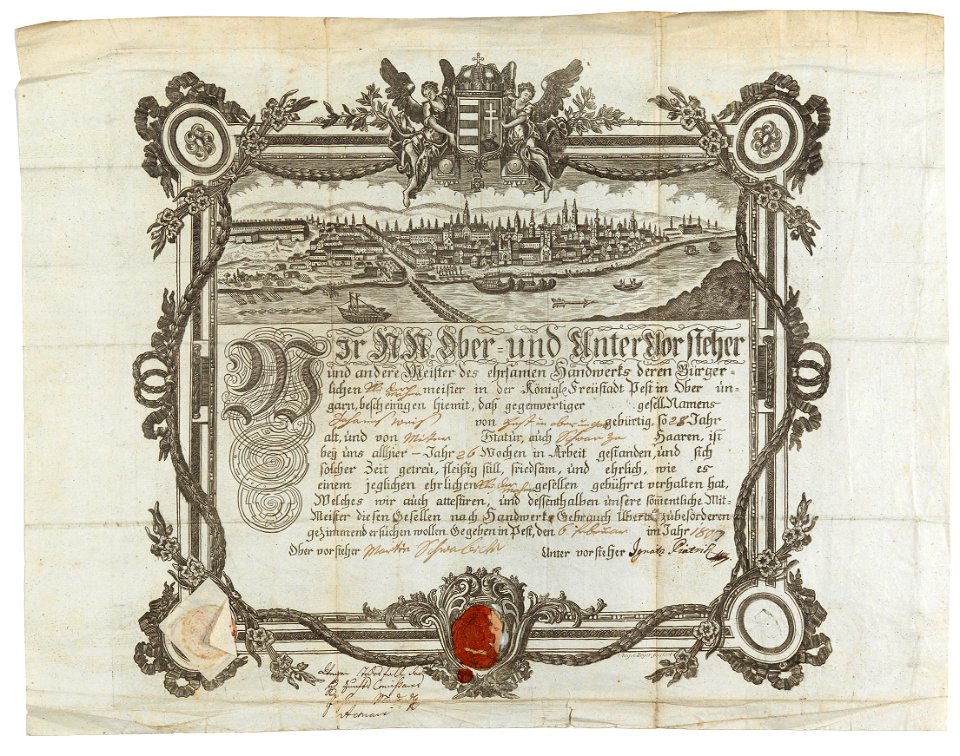 Wir N N Ober- und Unter Vorsteher
und andere Meister des ehrsamen Handwerks deren Bürger-
lichen meister in der Königl. Freustadt Pest in Ober un-
garn, bescheinigen hiemit, daß gegenwertiger gesell Namens
Johannes Weiß von Pest in ober ungar gebürtig, so 28 Jahr
alt, und von Mittler Statur, auch Schwarze Haaren, ist
bey uns allhier – Jahr 26 Wochen in Arbeit gestanden, und sich
solcher Zeit getreu, fleißig still, friedsam, und ehrlich, wie es
einem jeglichen ehrlichen gesellen gebühret verhalten hat,
Welches wir auch attestiren, und dessenthalben unsere somentliche Mit-
Meister diesen Gesellen nach Handwerks Gebrauch überall zubefördern
gezimmend ersuchen wollen Gegeben in Pest, den 6 Februar im Jahr
Ober vorsteher Martin Unter vorsteher Ignatz